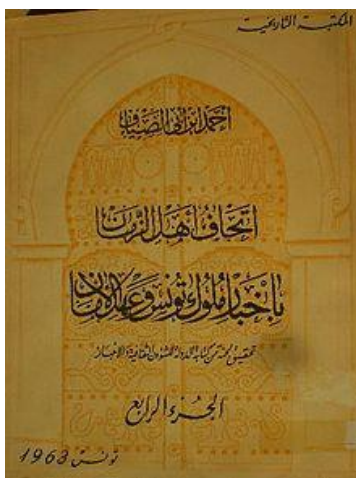 المكتبة التاريخية
أحمد ابن أبي الضياف
إتحاف أهل الزمان
بأخبار ملوك تونس وعهد الأمان
تحقيق لجنة من كتابة الدولة للشؤون الثقافية والأخبار
الجزء الرابع
تونس 1963